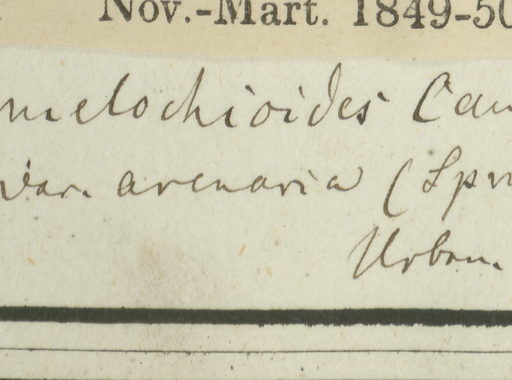 Nov.-Mart. 1849-50
melochioides Cam
var. arenaria (Spr
Urban.